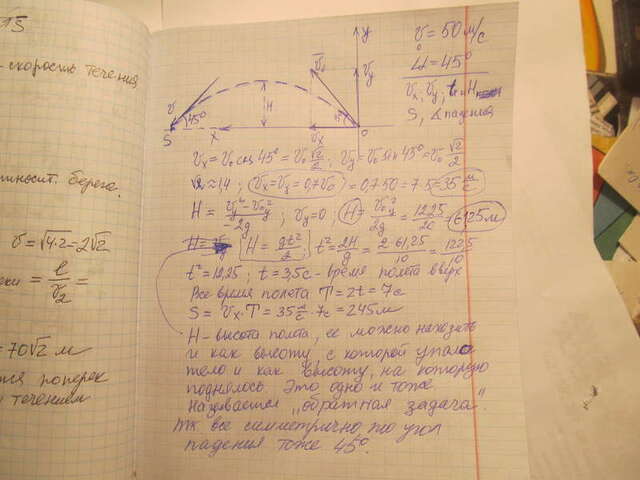 - скорость течения
относит. берега.
v = √4·2 = 2√2
= l/v₂ =
= 70√2 м
поперек
течением
y
v = 50 м/с
α = 45°
Vx; Vy; t; H
S, ∠ падения
V₀
Vy
v
45°
H
S
X
Vx
O
Vx = V₀ cos 45° = V₀ √2/2; Vy = V₀ sin 45° = V₀ √2/2
√2 ≈ 1,4; Vx = Vy = 0,7V₀ = 0,7·50 = 7·5 = 35 м/с
H = (Vy² - V₀y²)/-2g; Vy = 0; H = V₀y²/2g = 1225/20 = 61,25 м
H = gt²/2; t² = 2H/g = 2·61,25/10 = 122,5/10
t² = 12,25; t = 3,5 с - время полета вверх
Все время полета T = 2t = 7 с
S = Vx·T = 35 м/с · 7 с = 245 м
H - высота полета, ее можно находить
и как высоту, с которой упало
тело и как высоту, на которую
поднялось. Это одно и тоже.
Называется „обратная задача".
Тк все симметрично, то угол
падения тоже 45°.